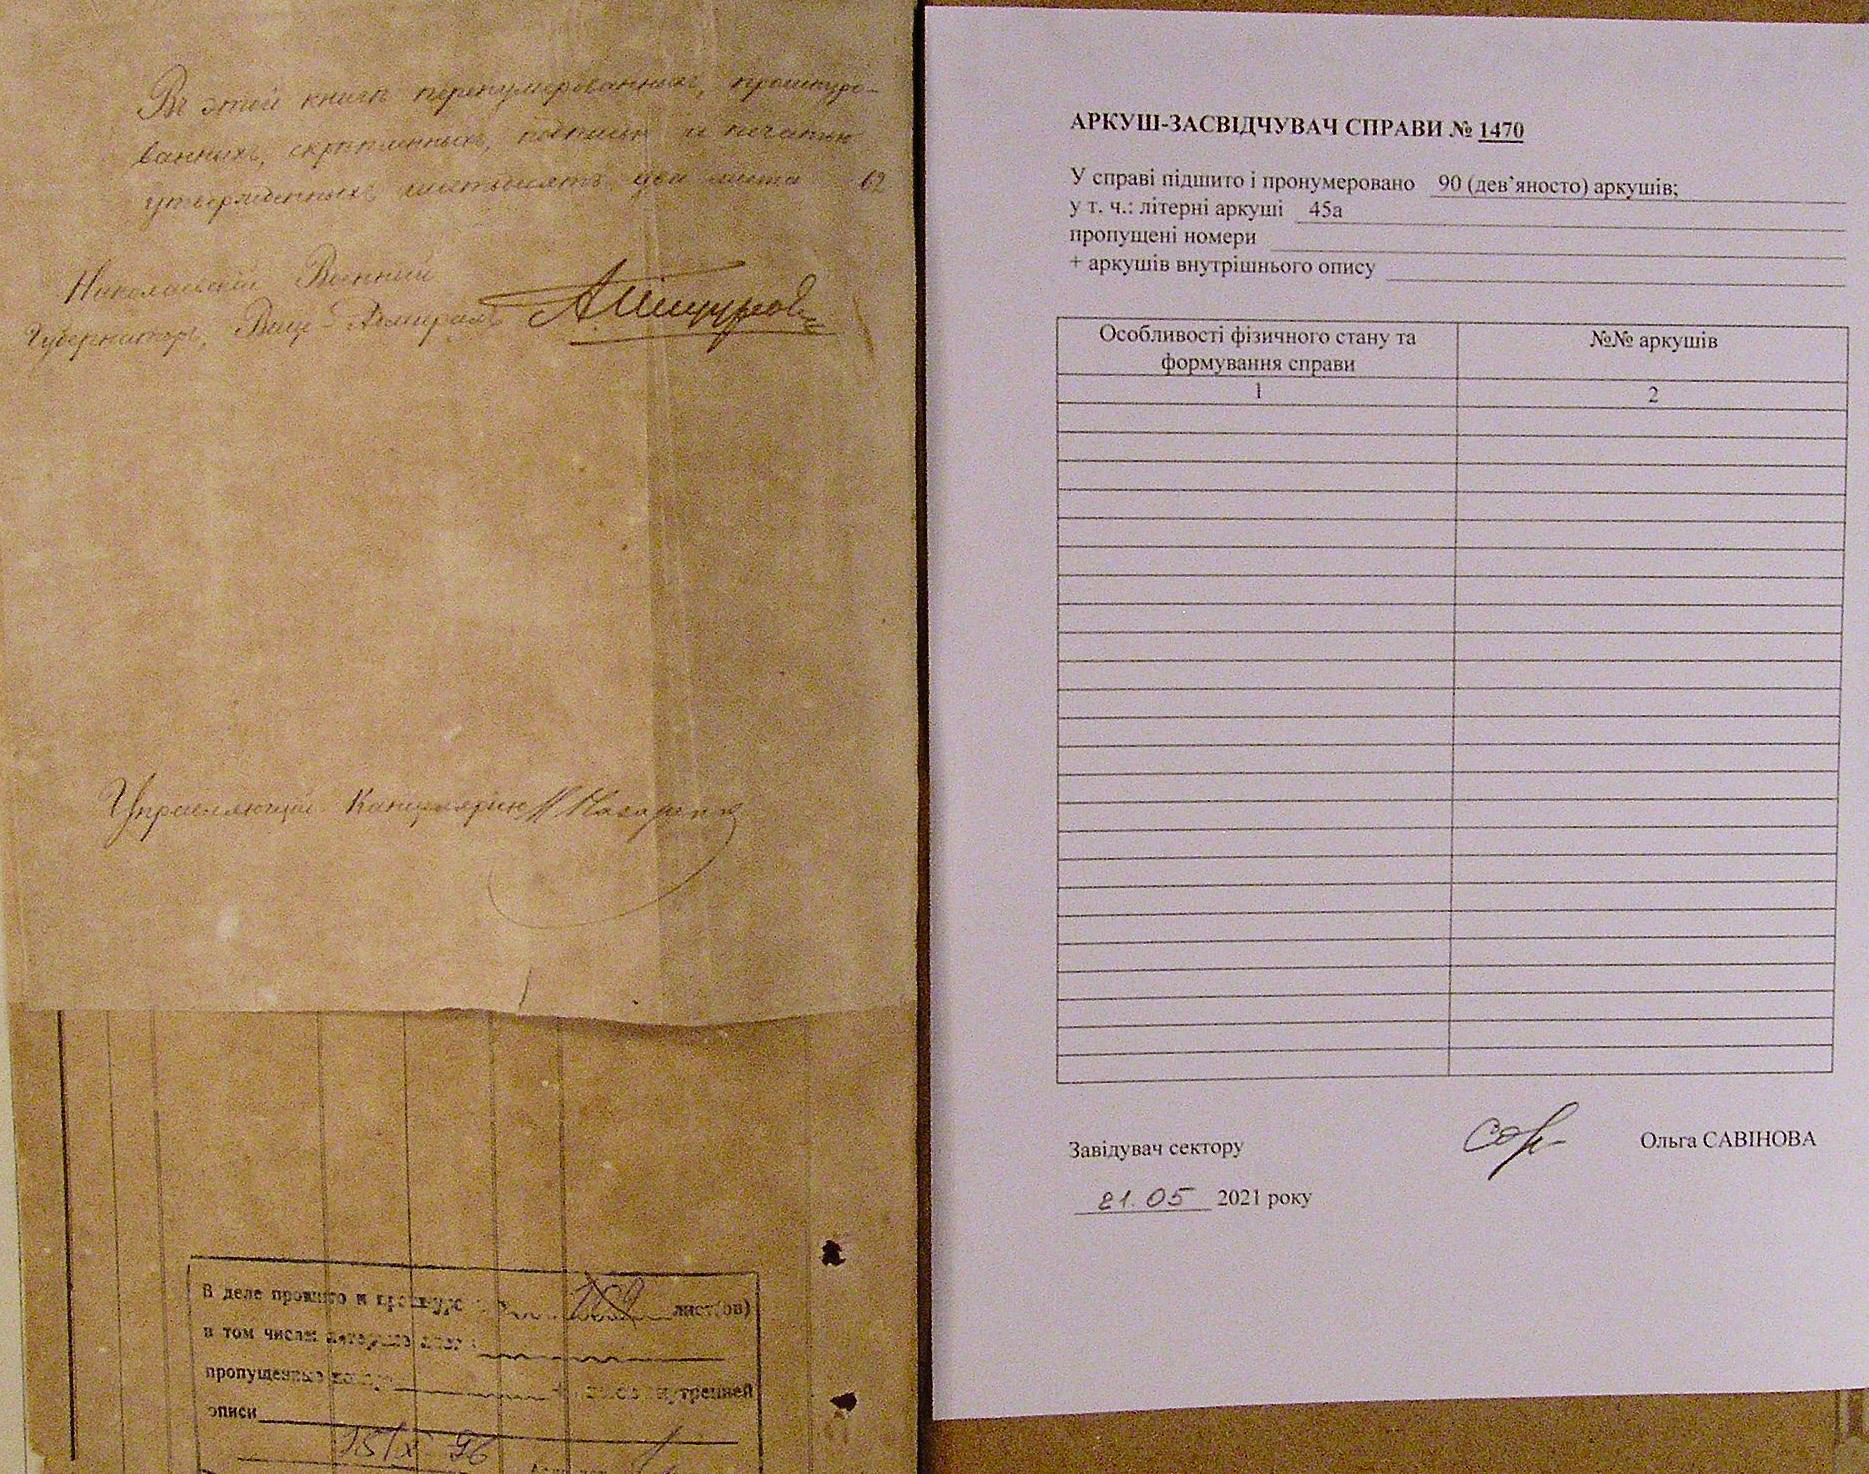 Въ этой книгѣ перенумерованныхъ, прошнуро-
ванныхъ, скрѣпленныхъ, подписью и печатью
утвержденныхъ шестьдесятъ два листа 62
Николаевскій Военный
Губернаторъ, Вице-Адмиралъ
Управляющій Канцеляріею
В деле прошито и 169 лист(ов)
в том числе:
пропущенные
описи
15/X 96
АРКУШ-ЗАСВІДЧУВАЧ СПРАВИ № 1470
У справі підшито і пронумеровано 90 (дев’яносто) аркушів;
у т. ч.: літерні аркуші 45а
пропущені номери
+ аркушів внутрішнього опису
Особливості фізичного стану та
формування справи
№№ аркушів
1 2
Завідувач сектору Ольга САВІНОВА
21.05 2021 року